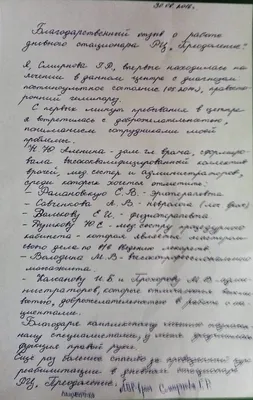 30.08.2018г.
Благодарственный отзыв о работе
дневного стационара РЦ „Преодоление"
Я, Смирнова Г.Р, впервые находилась на
лечении в данном центре с диагнозом
постинсультное состояние, правосто-
ронний гемипарез.
С первых минут пребывания в центре
я встретилась с доброжелательностью,
пониманием сотрудниками моей
проблемы.
Н.Ю. Аленина - зам. гл. врача, сформиро-
вала высококвалифицированный коллектив
врачей, мед. сестер и администраторов,
среди которых хочется отметить:
С.В. -
- А.В - невролога
- С.И. - физиотерапевта
- Ю.С - мед. сестру процедурного
кабинета - которая является мастером
своего дела по лекарств
- Володина М.В - высокопрофессионального
массажиста.
- Н.Б и Прохорову М.В - адми-
нистраторов, которые отличаются
доброжелательностью в работе с па-
циентами.
Благодаря комплексному лечению
специалистами, у меня
функция правой руки.
Еще раз большое спасибо за
реабилитацию в дневном стационаре
РЦ „Преодоление"
Смирнова Г.Р.